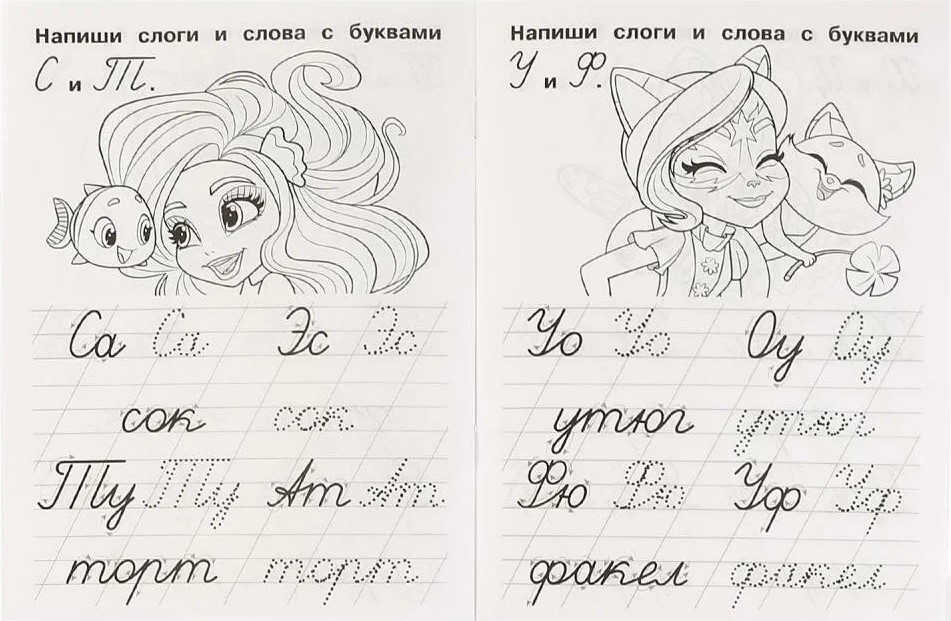 Напиши слоги и слова с буквами
С и Т.
Са Са Эс Эс
сок сок
Ту Ту Ат Ат
торт торт
Напиши слоги и слова с буквами
У и Ф.
Уо Уо Оу Оу
утюг утюг
Фю Фю Уф Уф
факел факел